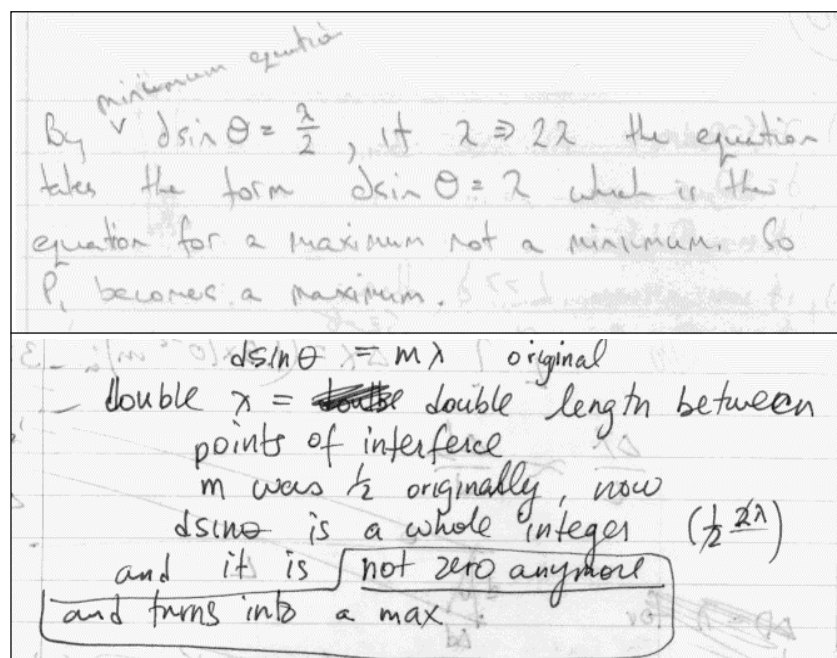 minimum equation
By ∨ dsin θ = λ/2, if λ ⇒ 2λ the equation
takes the form dsin θ = λ which is the
equation for a maximum not a minimum. So
P₁ becomes a maximum.
dsinθ = mλ original
double λ = double length between
points of interfece
m was 1/2 originally, now
dsinθ is a whole integer (1/2 2λ)
and it is not zero anymore
and turns into a max